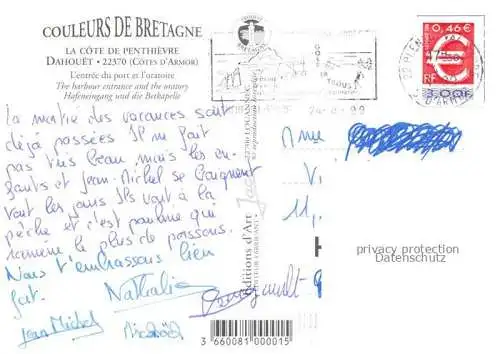 COULEURS DE BRETAGNE
LA CÔTE DE PENTHIÈVRE
DAHOUËT • 22370 (CÔTES D'ARMOR)
L'entrée du port et l'oratoire
The harbour entrance and the oratory
Hafeneingang und die Betkapelle
0,46€
RF
3,00F
La moitié des vacances sont
déjà passées Il ne fait
pas très beau mais les en-
fants et Jean-Michel se baignent
tout les jours Ils vont à la
pêche et c'est pauline qui
ramène le plus de poissons.
Nous t'embrassons bien
fort.
Nathalie
Jean Michel
Mme
V
11,
éditions d'Art
privacy protection
Datenschutz
3 660081 000015